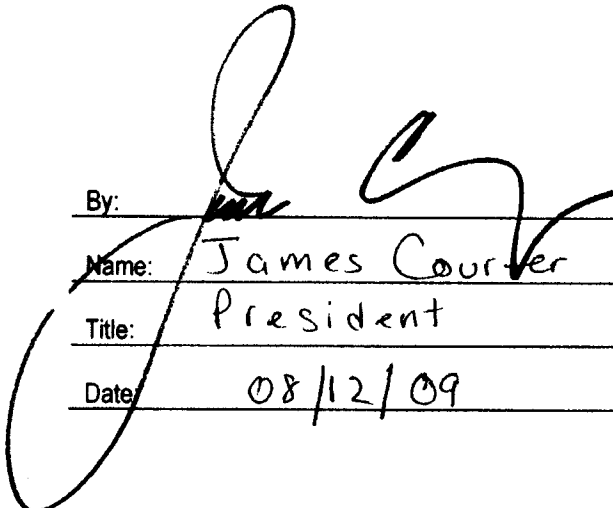 By:
Name: James Courter
Title: President
Date: 08/12/09